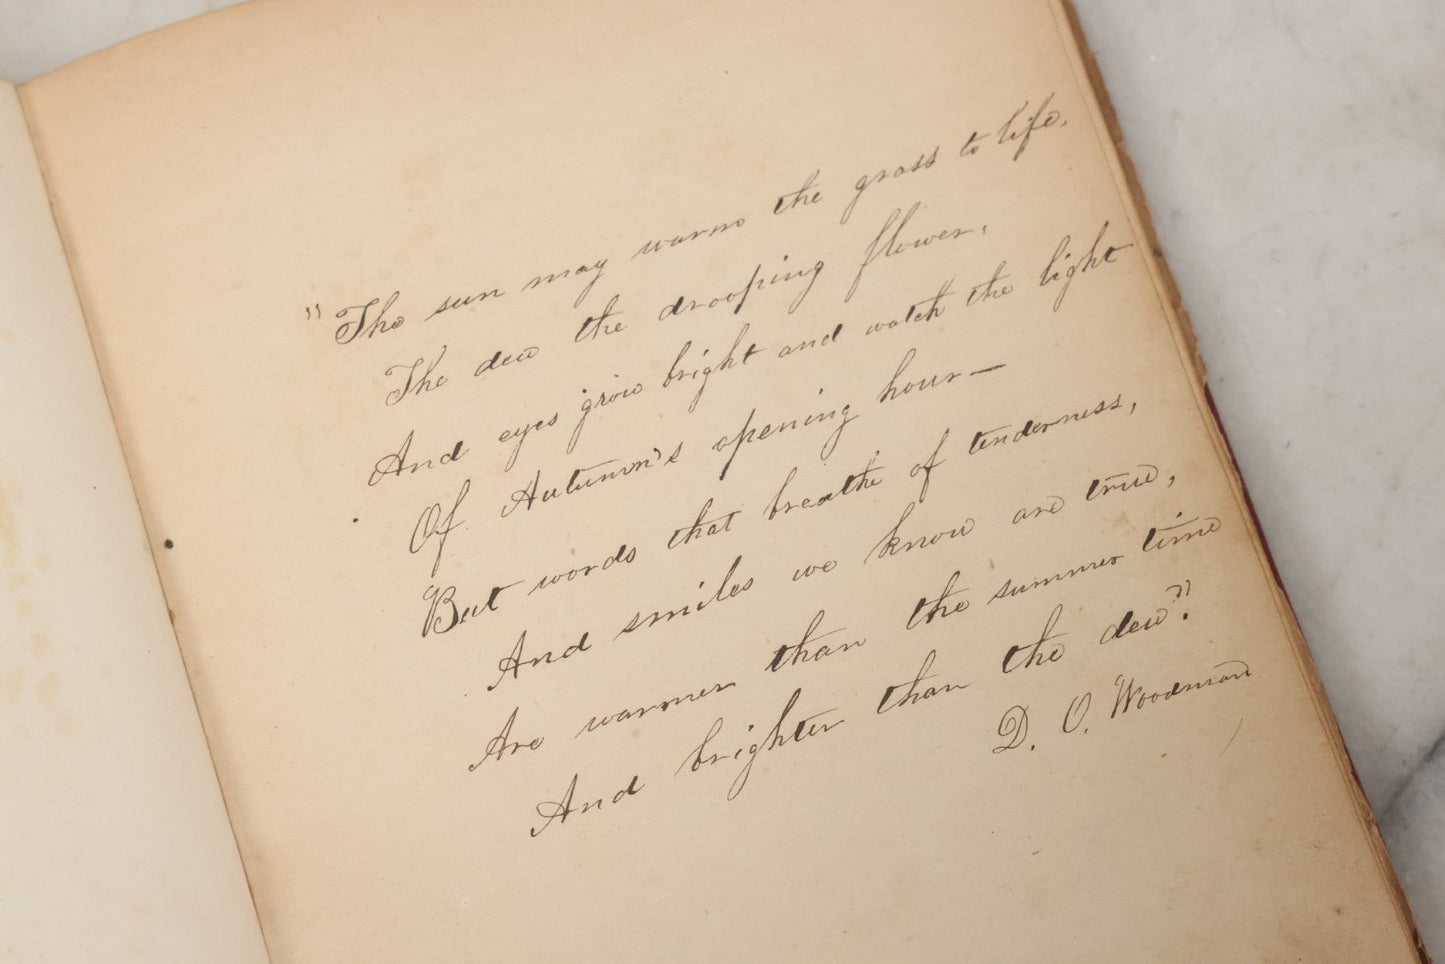 "The sun may warm the grass to life,
The dew the drooping flower,
And eyes grow bright and watch the light
Of Autumn's opening hour—
But words that breathe of tenderness,
And smiles we know are true,
Are warmer than the summer time
And brighter than the dew."
D. O. Woodman